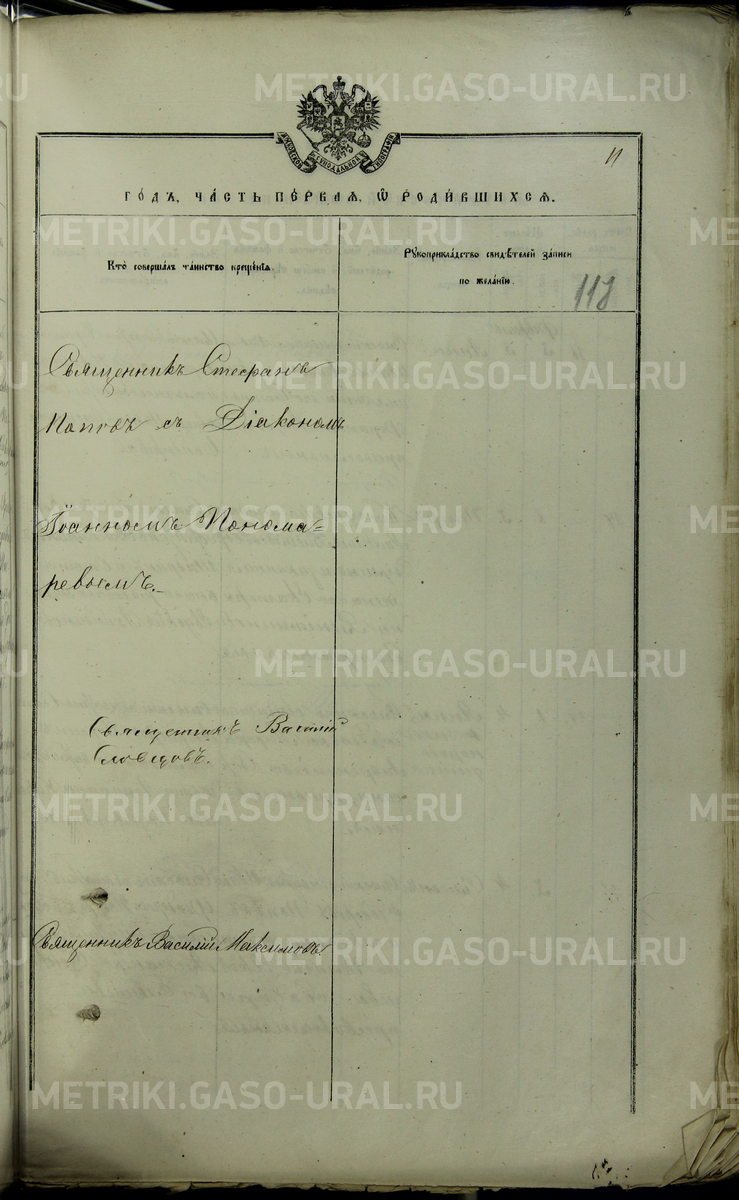 METRIKI.GASO-URAL.RU
11
годъ, часть первая, ѡ родившихся.
Кто совершалъ таинство крещенія.
Рукоприкладство свидѣтелей записи
по желанію.
118
Священникъ Стефанъ
Поповъ съ Діакономъ
Іоанномъ Понома=
ревымъ.
Священникъ Василій
Словцовъ.
Священникъ Василій Максимовъ.